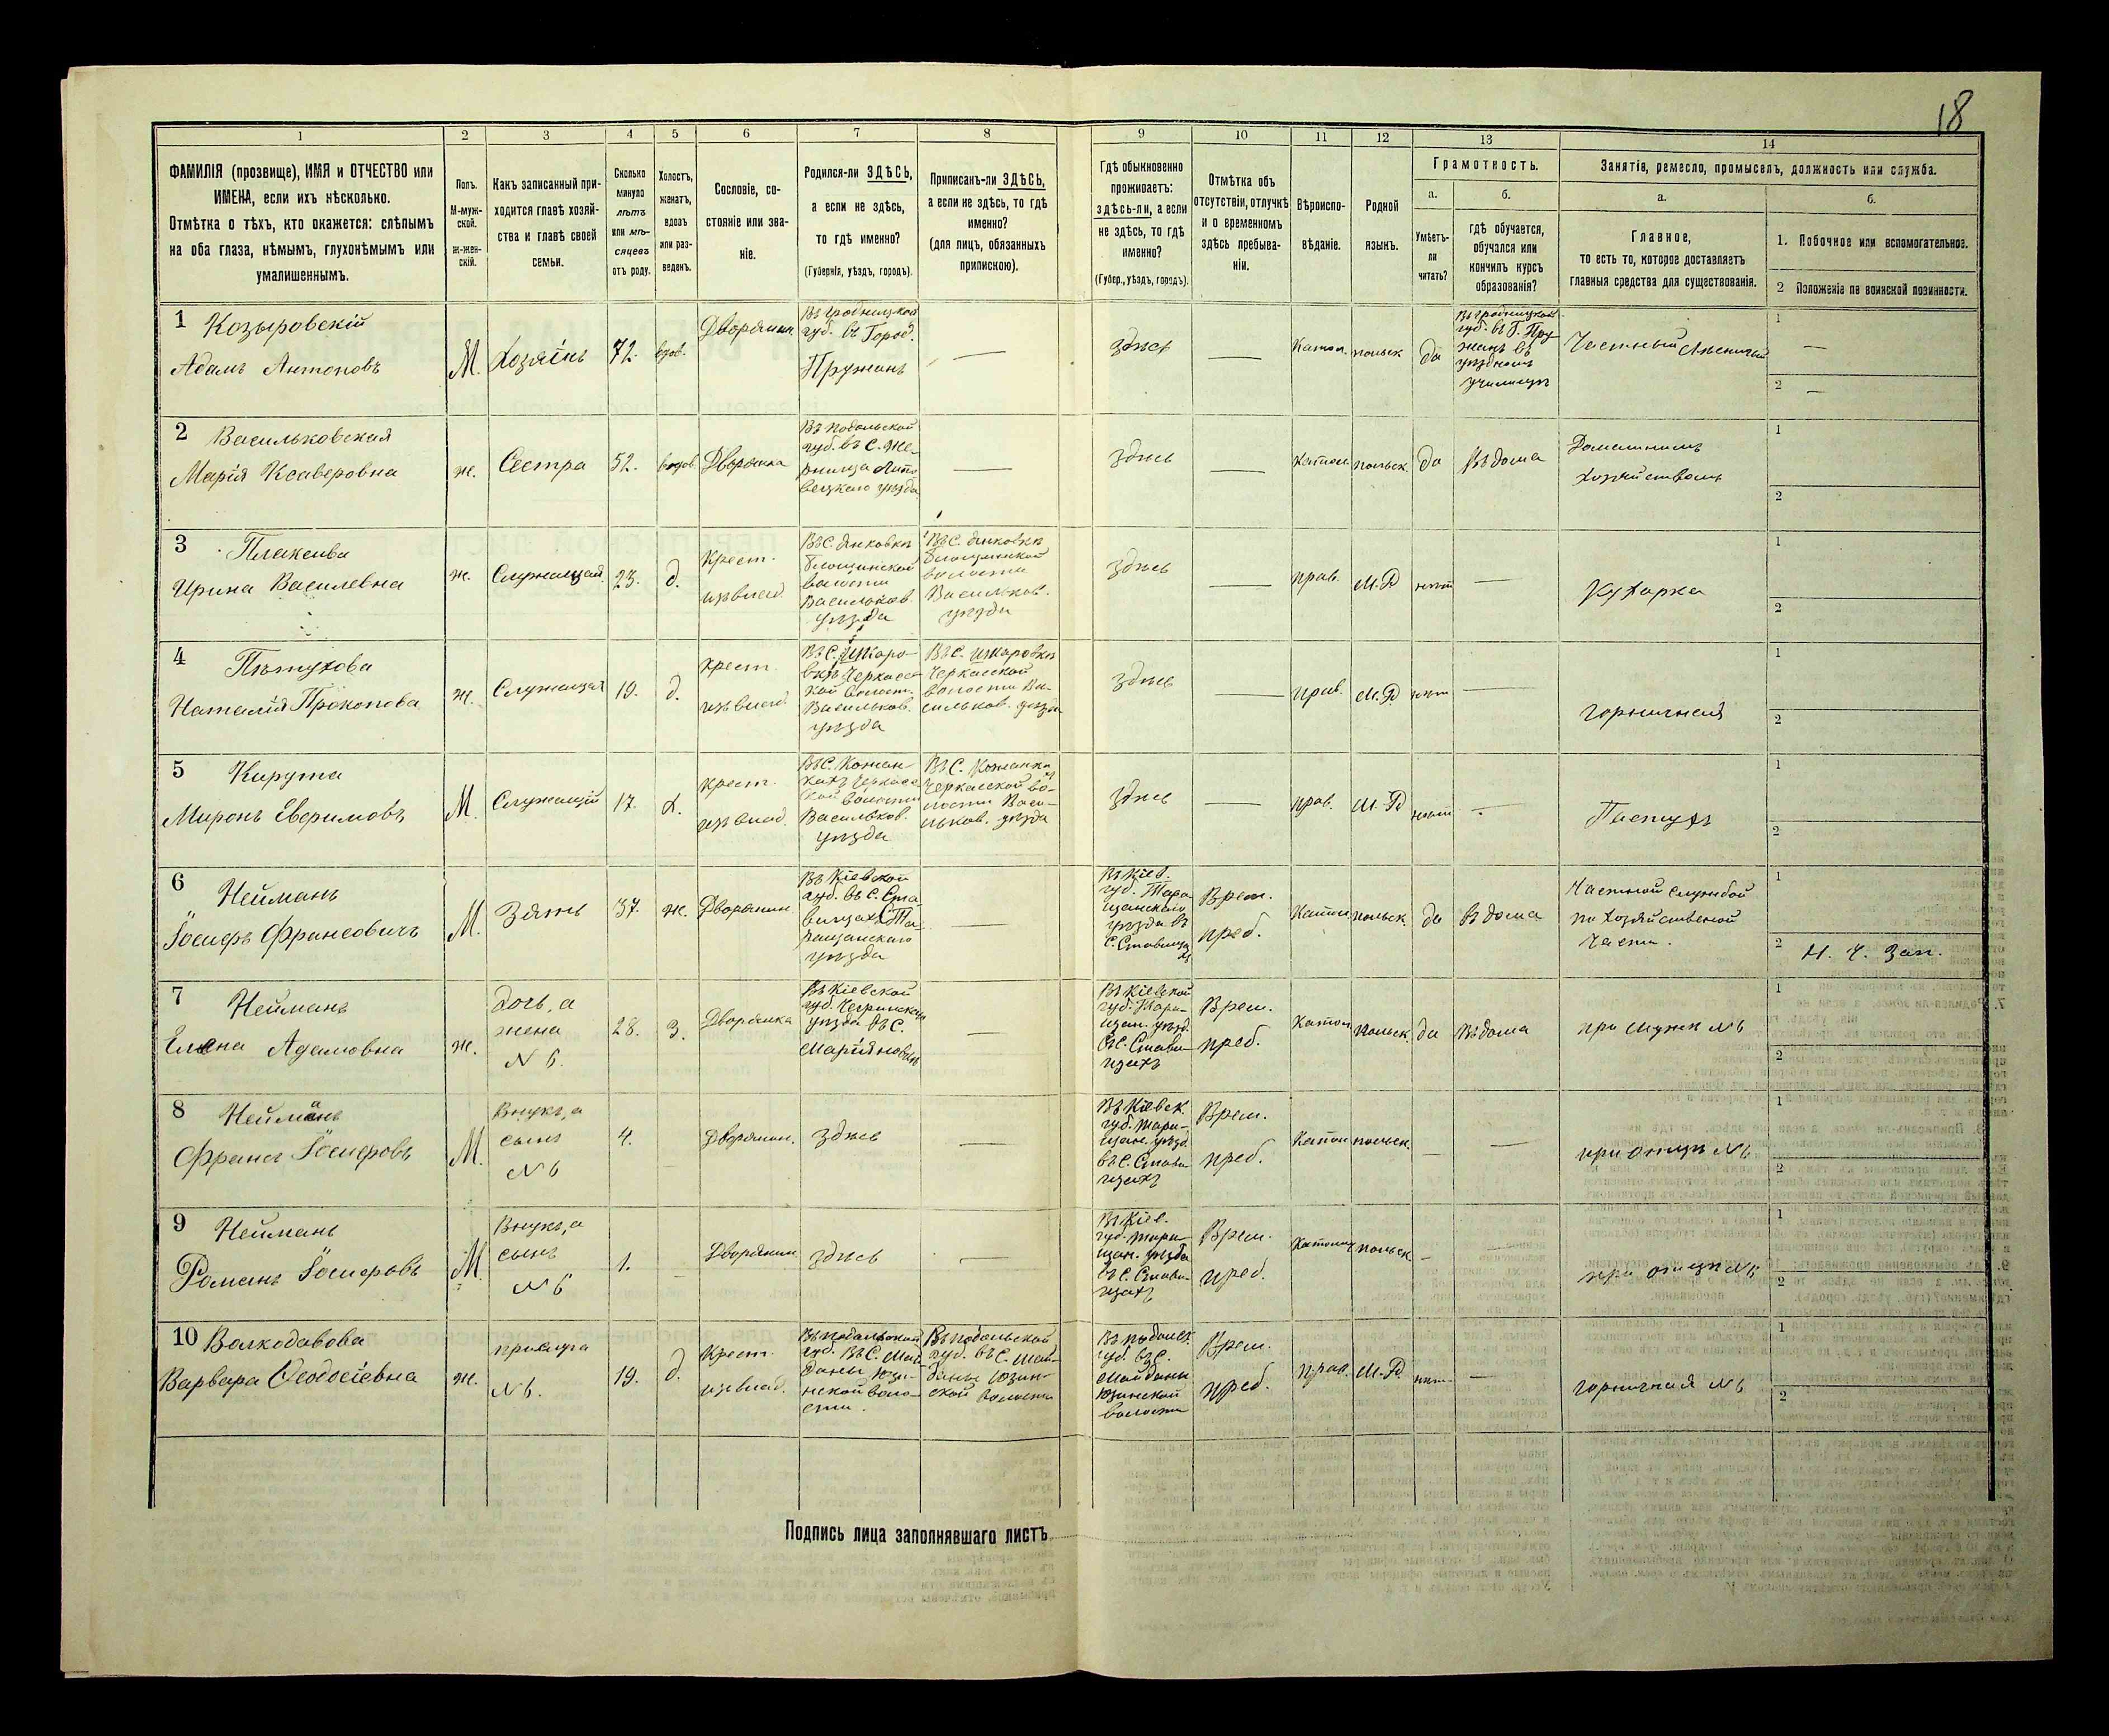 18
1 2 3 4 5 6 7 8 9 10 11 12 13 14
ФАМИЛІЯ (прозвище), ИМЯ и ОТЧЕСТВО или
ИМЕНА, если ихъ нѣсколько.
Отмѣтка о тѣхъ, кто окажется: слѣпымъ
на оба глаза, нѣмымъ, глухонѣмымъ или
умалишеннымъ.
Полъ.
М-муж-
ской.
ж-жен-
скій.
Какъ записанный при-
ходится главѣ хозяй-
ства и главѣ своей
семьи.
Сколько
минуло
лѣтъ
или мѣ-
сяцевъ
отъ роду.
Холостъ,
женатъ,
вдовъ
или раз-
веденъ.
Сословіе, со-
стояніе или зва-
ніе.
Родился-ли ЗДѢСЬ,
а если не здѣсь,
то гдѣ именно?
(Губернія, уѣздъ, городъ).
Приписанъ-ли ЗДѢСЬ,
а если не здѣсь, то гдѣ
именно?
(для лицъ, обязанныхъ
припискою).
Гдѣ обыкновенно
проживаетъ:
здѣсь-ли, а если
не здѣсь, то гдѣ
именно?
(Губер., уѣздъ, городъ).
Отмѣтка объ
отсутствіи, отлучкѣ
и о временномъ
здѣсь пребыва-
ніи.
Вѣроиспо-
вѣданіе.
Родной
языкъ.
Грамотность.
а.
Умѣетъ-
ли
читать?
б.
гдѣ обучается,
обучался или
кончилъ курсъ
образованія?
Занятія, ремесло, промыселъ, должность или служба.
а.
Главное,
то есть то, которое доставляетъ
главныя средства для существованія.
б.
1. Побочное или вспомогательное.
2 Положеніе по воинской повинности.
1 Козыровскій
Адамъ Антоновъ
М.
Хозяинъ
72.
вдов.
Дворянин.
Въ Гродницкой
губ. въ Город.
Пружанъ
—
здѣсь
—
Катол.
польск
да
Въ Гродницкой
губ. въ Г. Пру-
жанъ въ
уѣздномъ
училищѣ
Частный Лѣсничій
1 —
2 —
2 Васильковская
Марія Ксаверовна
ж.
Сестра
52.
вдов.
Дворянка
Въ Подольской
губ. въ С. Же-
рнища Липо
вецкаго уѣзда
—
здѣсь
—
Катол
польск.
да
Въ дома
Домашнимъ
хозяйствомъ
1
2
3 Плаксива
Ирина Василевна
ж.
Служащая
23.
д.
Крест.
изъ влад.
Въ С. Янковкѣ
волости
Васильков.
уѣзда
Въ С. Янковкѣ
волости
Васильков.
уѣзда
здѣсь
—
прав.
М.Р
нѣт
—
Кухарка
1
2
4 Пѣтухова
Наталія Прокопова
ж.
Служащая
19.
д.
крест.
изъ влад.
Въ С. Шкаро-
вкѣ Черкасс
кой волост.
Васильков.
уѣзда
Въ С. Шкаровкѣ
Черкасской
волости Ва-
сильков. уѣзда
здѣсь
—
прав.
М.Р
нѣт
—
горничная
1
2
5 Кирута
Миронъ Еверимовъ
М.
Служащій
17.
х.
крест.
изъ влад.
Въ С. Кожан-
кахъ Черкасс
кой волости
Васильков.
уѣзда
Въ С. Кожанка
Черкасской во-
лости Васи-
льков. уѣзда
здѣсь
—
прав.
М.Р
нѣт
—
Пастухъ
1
2
6 Нейманъ
Іосифъ Францовичъ
М.
Зять
37.
ж.
Дворянин
Въ Кіевской
губ. въ С. Ста-
вищах Та-
ращанскаго
уѣзда
—
Въ Кіев.
губ. Тара
щанскаго
уѣзда въ
С. Ставищахъ
Врем.
преб.
Катол
польск.
да
въ дома
Частной службой
по хозяйственой
части.
1
2 Н. Ч. Зап.
7 Нейманъ
Елена Адамовна
ж.
дочь, а
жена
N 6.
28.
з.
Дворянка
Въ Кіевской
губ. Чегринскаго
уѣзда въ С.
—
Въ Кіевской
губ. Тара-
щан. уѣзд.
въ С. Стави-
щахъ
Врем.
преб.
Катол
польск.
да
въ дома
при мужѣ N 6
1
2
8 Нейманъ
Францъ Іосифовъ
М.
Внукъ, а
сынъ
N 6
4.
Дворянин.
здѣсь
—
Въ Кіевск.
губ. Тара-
щан. уѣзд.
въ С. Стави
щахъ
Врем.
преб.
Катол
польск.
—
—
при отцѣ N 6
1
2
9 Нейманъ
Романъ Іосифовъ
М.
Внукъ, а
сынъ
N 6
1.
Дворянин
здѣсь
—
Въ Кіев.
губ. Тара-
щан. уѣзда
въ С. Стави-
щахъ
Врем.
преб.
Католиц
польск.
—
—
при отцѣ N 6
1
2
10 Валкодавова
Варвара Ѳеодосіевна
ж.
прислуга
N 6.
19.
д.
Крест.
изъ влад.
Въ Подольской
губ. Въ С. Май-
даны Юзи-
нской воло-
сти.
Въ Подольской
губ. въ С. Май-
даны Юзин-
ской волости
Въ Подольск.
губ. въ С.
Майданы
Юзинской
волости
Врем.
преб.
прав.
М.Р
нѣт
—
горничная N 6
1
2
Подпись лица заполнявшаго листъ